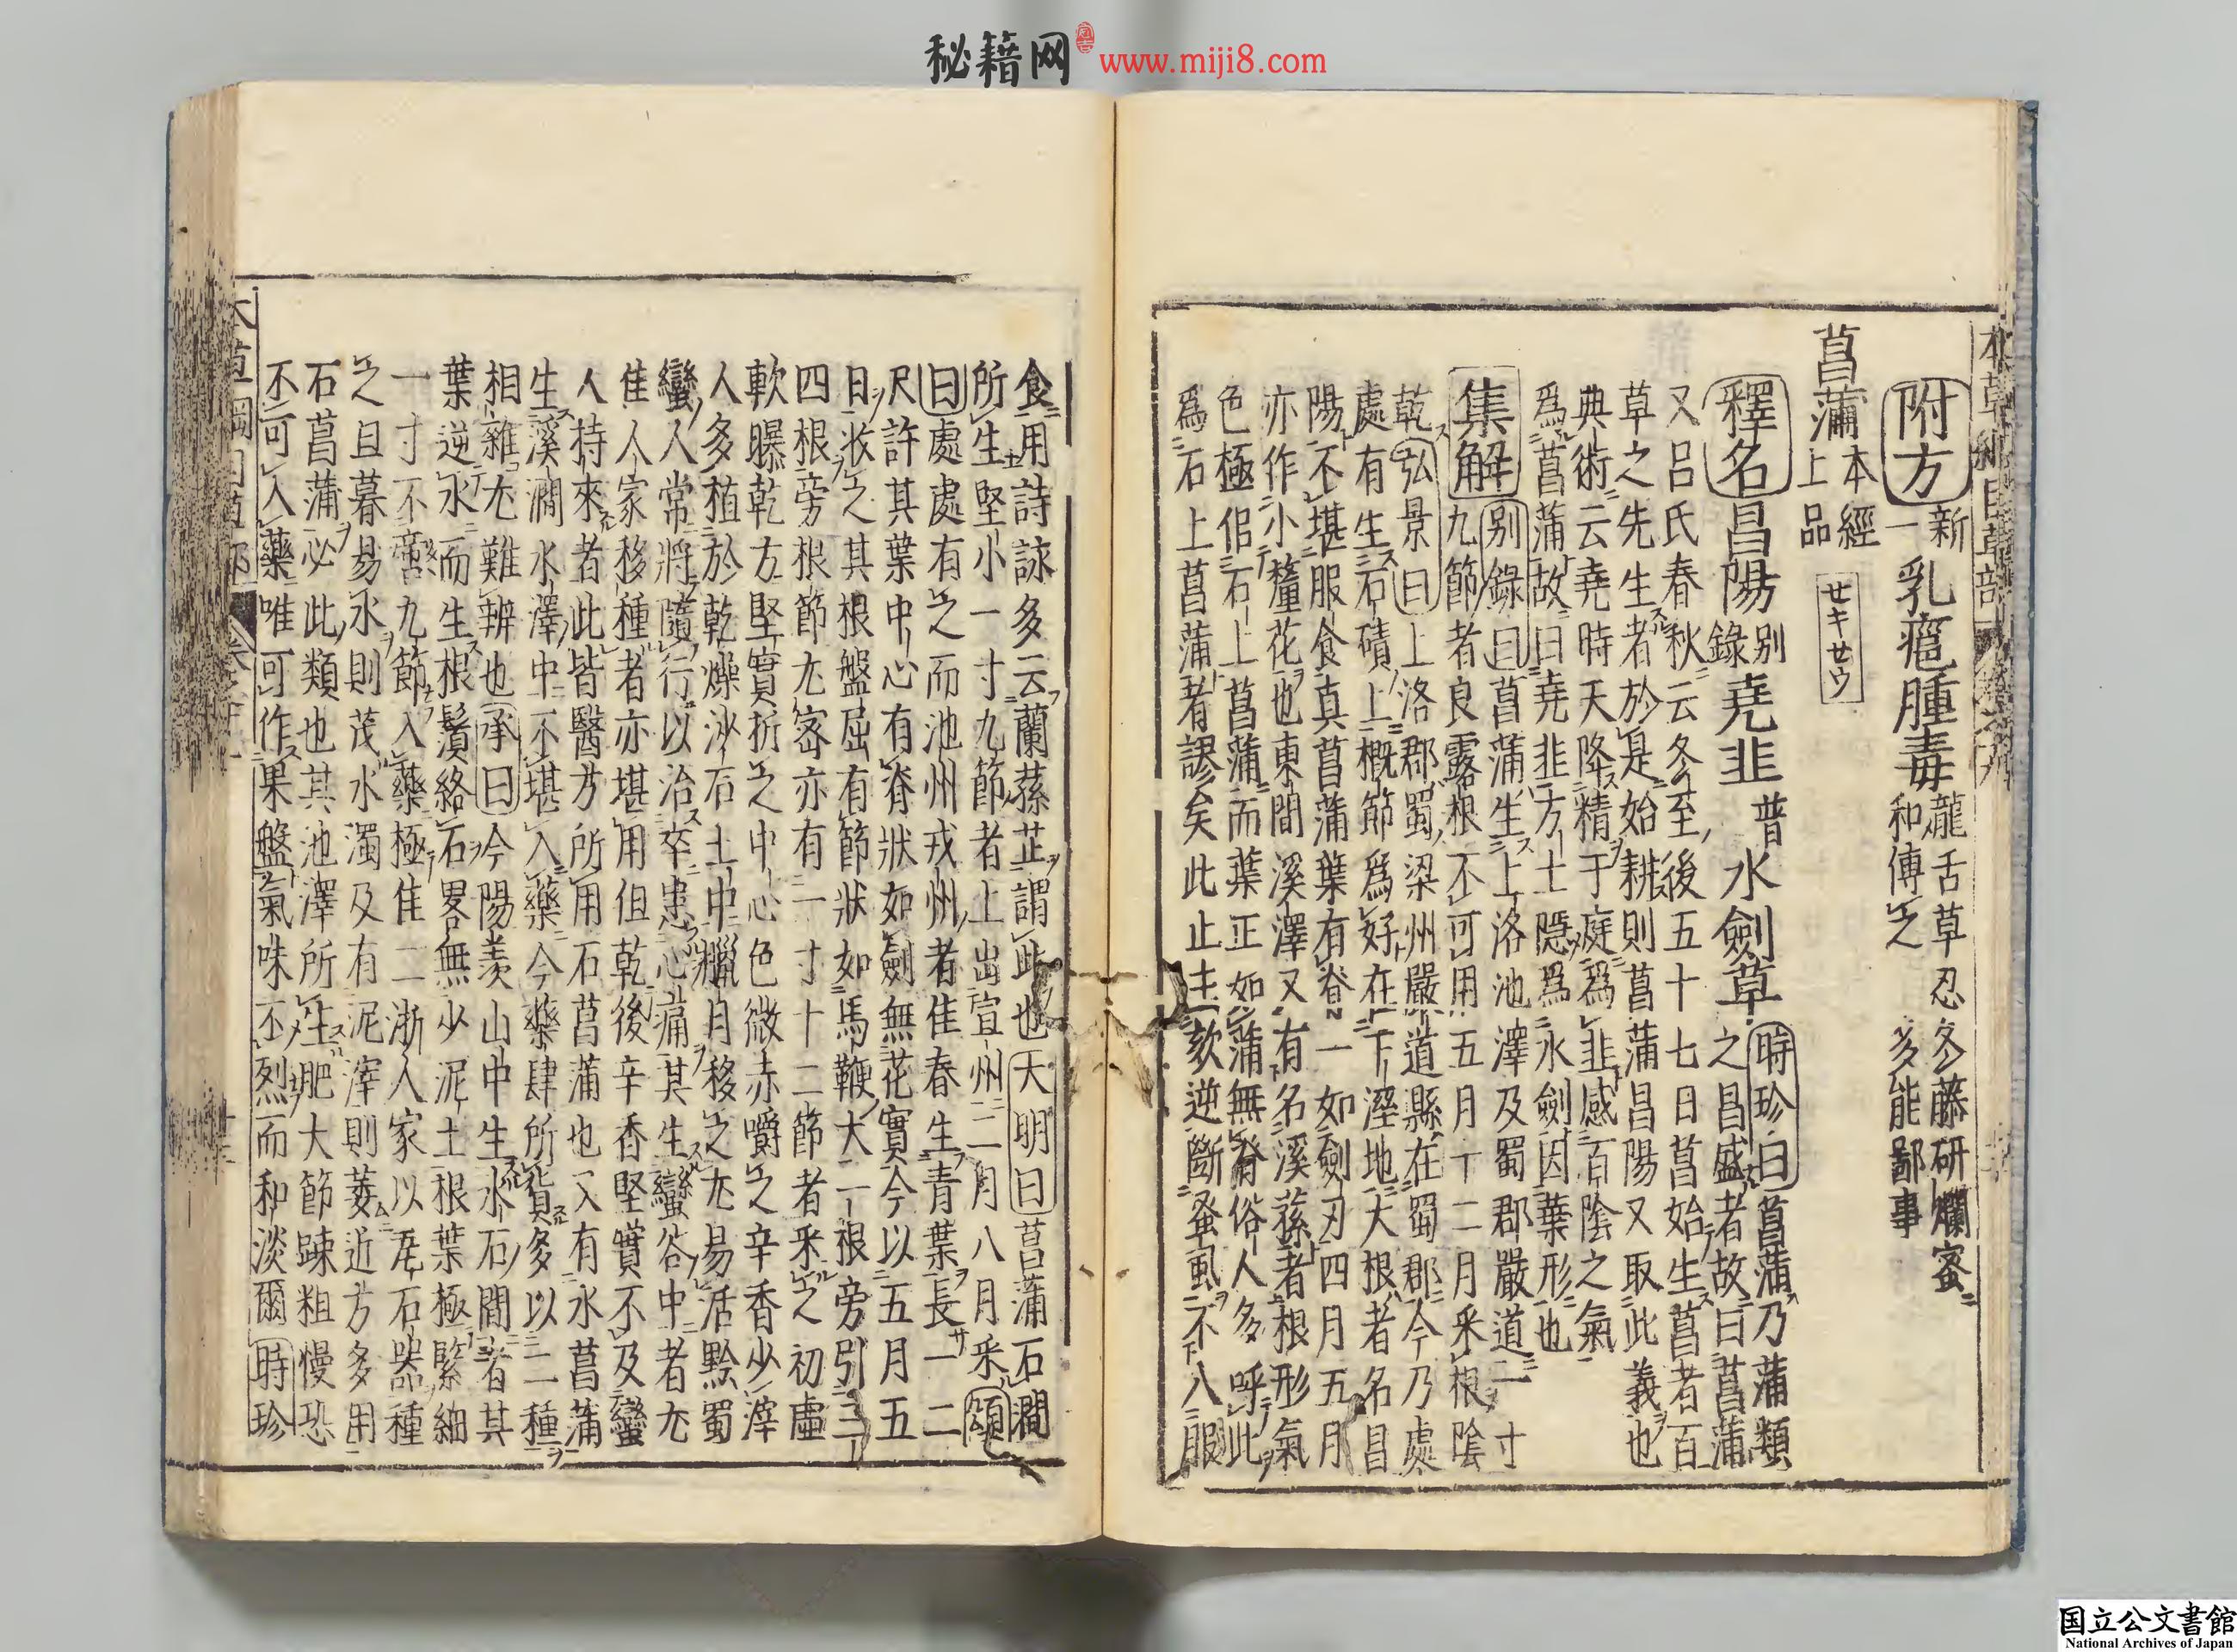 秘籍网 www.miji8.com
附方 新一 乳癰腫毒 龍舌草忍冬藤研爛蜜和傅之 多能鄙事
菖蒲 本經上品 セキセウ
釋名 昌陽 別錄 堯韭 普 水劍草 時珍曰菖蒲乃蒲類之昌盛者故曰菖蒲
又呂氏春秋云冬至後五十七日菖始生菖者百
草之先生者於是始耕則菖蒲昌陽又取此義也
典術云堯時天降精于庭爲韭感百陰之氣
爲菖蒲故曰堯韭方士隱爲水劍因葉形也
集解 別錄曰菖蒲生上洛池澤及蜀郡嚴道二寸
九節者良露根不可用五月十二月采根陰
乾弘景曰上洛郡蜀梁州嚴道縣在蜀郡今乃處
處有生石磧上概節爲好在下溼地大根者名昌
陽不堪服食真菖蒲葉有脊一如劍刃四月五月
亦作小釐花也東間溪澤又有名溪蓀者根形氣
色極佀石上菖蒲而葉正如蒲無脊俗人多呼此
爲石上菖蒲者謬矣此止主欬逆斷蚤虱不入服
食用詩詠多云蘭蓀芷謂此也大明曰菖蒲石澗
所生堅小一寸九節者上出宣州二月八月采頌
曰處處有之而池州戎州者佳春生青葉長一二
尺許其葉中心有脊狀如劍無花實今以五月五
日收之其根盤屈有節狀如馬鞭大一根旁引三
四根旁根節尤密亦有一寸十二節者采之初虛
軟曝乾方堅實折之中心色微赤嚼之辛香少滓
人多植於乾燥沙石土中臘月移之尤易活黔蜀
蠻人常將隨行以治卒患心痛其生蠻谷中者尤
佳人家移種者亦堪用但乾後辛香堅實不及蠻
人持來者此皆醫方所用石菖蒲也又有水菖蒲
生溪澗水澤中不堪入藥今藥肆所貨多以二種
相雜尤難辨也承曰今陽羨山中生水石間者其
葉逆水而生根鬚絡石畧無少泥土根葉極緊細
一寸不啻九節入藥極佳二浙人家以瓦石器種
之旦暮易水則茂水濁及有泥滓則萎近方多用
石菖蒲必此類也其池澤所生肥大節踈粗慢恐
不可入藥唯可作果盤氣味不烈而和淡爾時珍
国立公文書館
National Archives of Japan